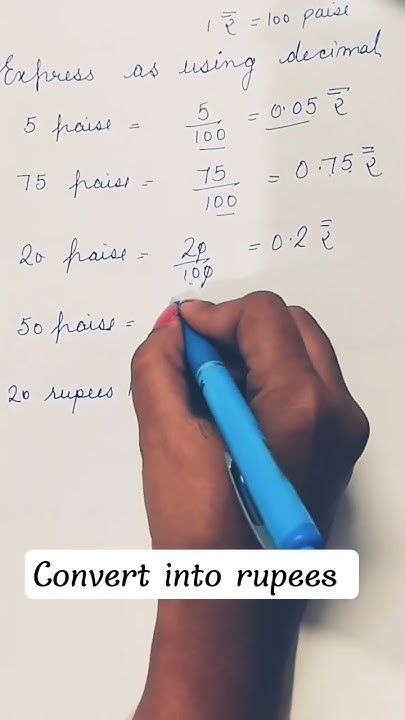 1 ₹ = 100 paise
Express as using decimal
5 paise = 5/100 = 0.05 ₹
75 paise = 75/100 = 0.75 ₹
20 paise = 20/100 = 0.2 ₹
50 paise =
20 rupees
Convert into rupees